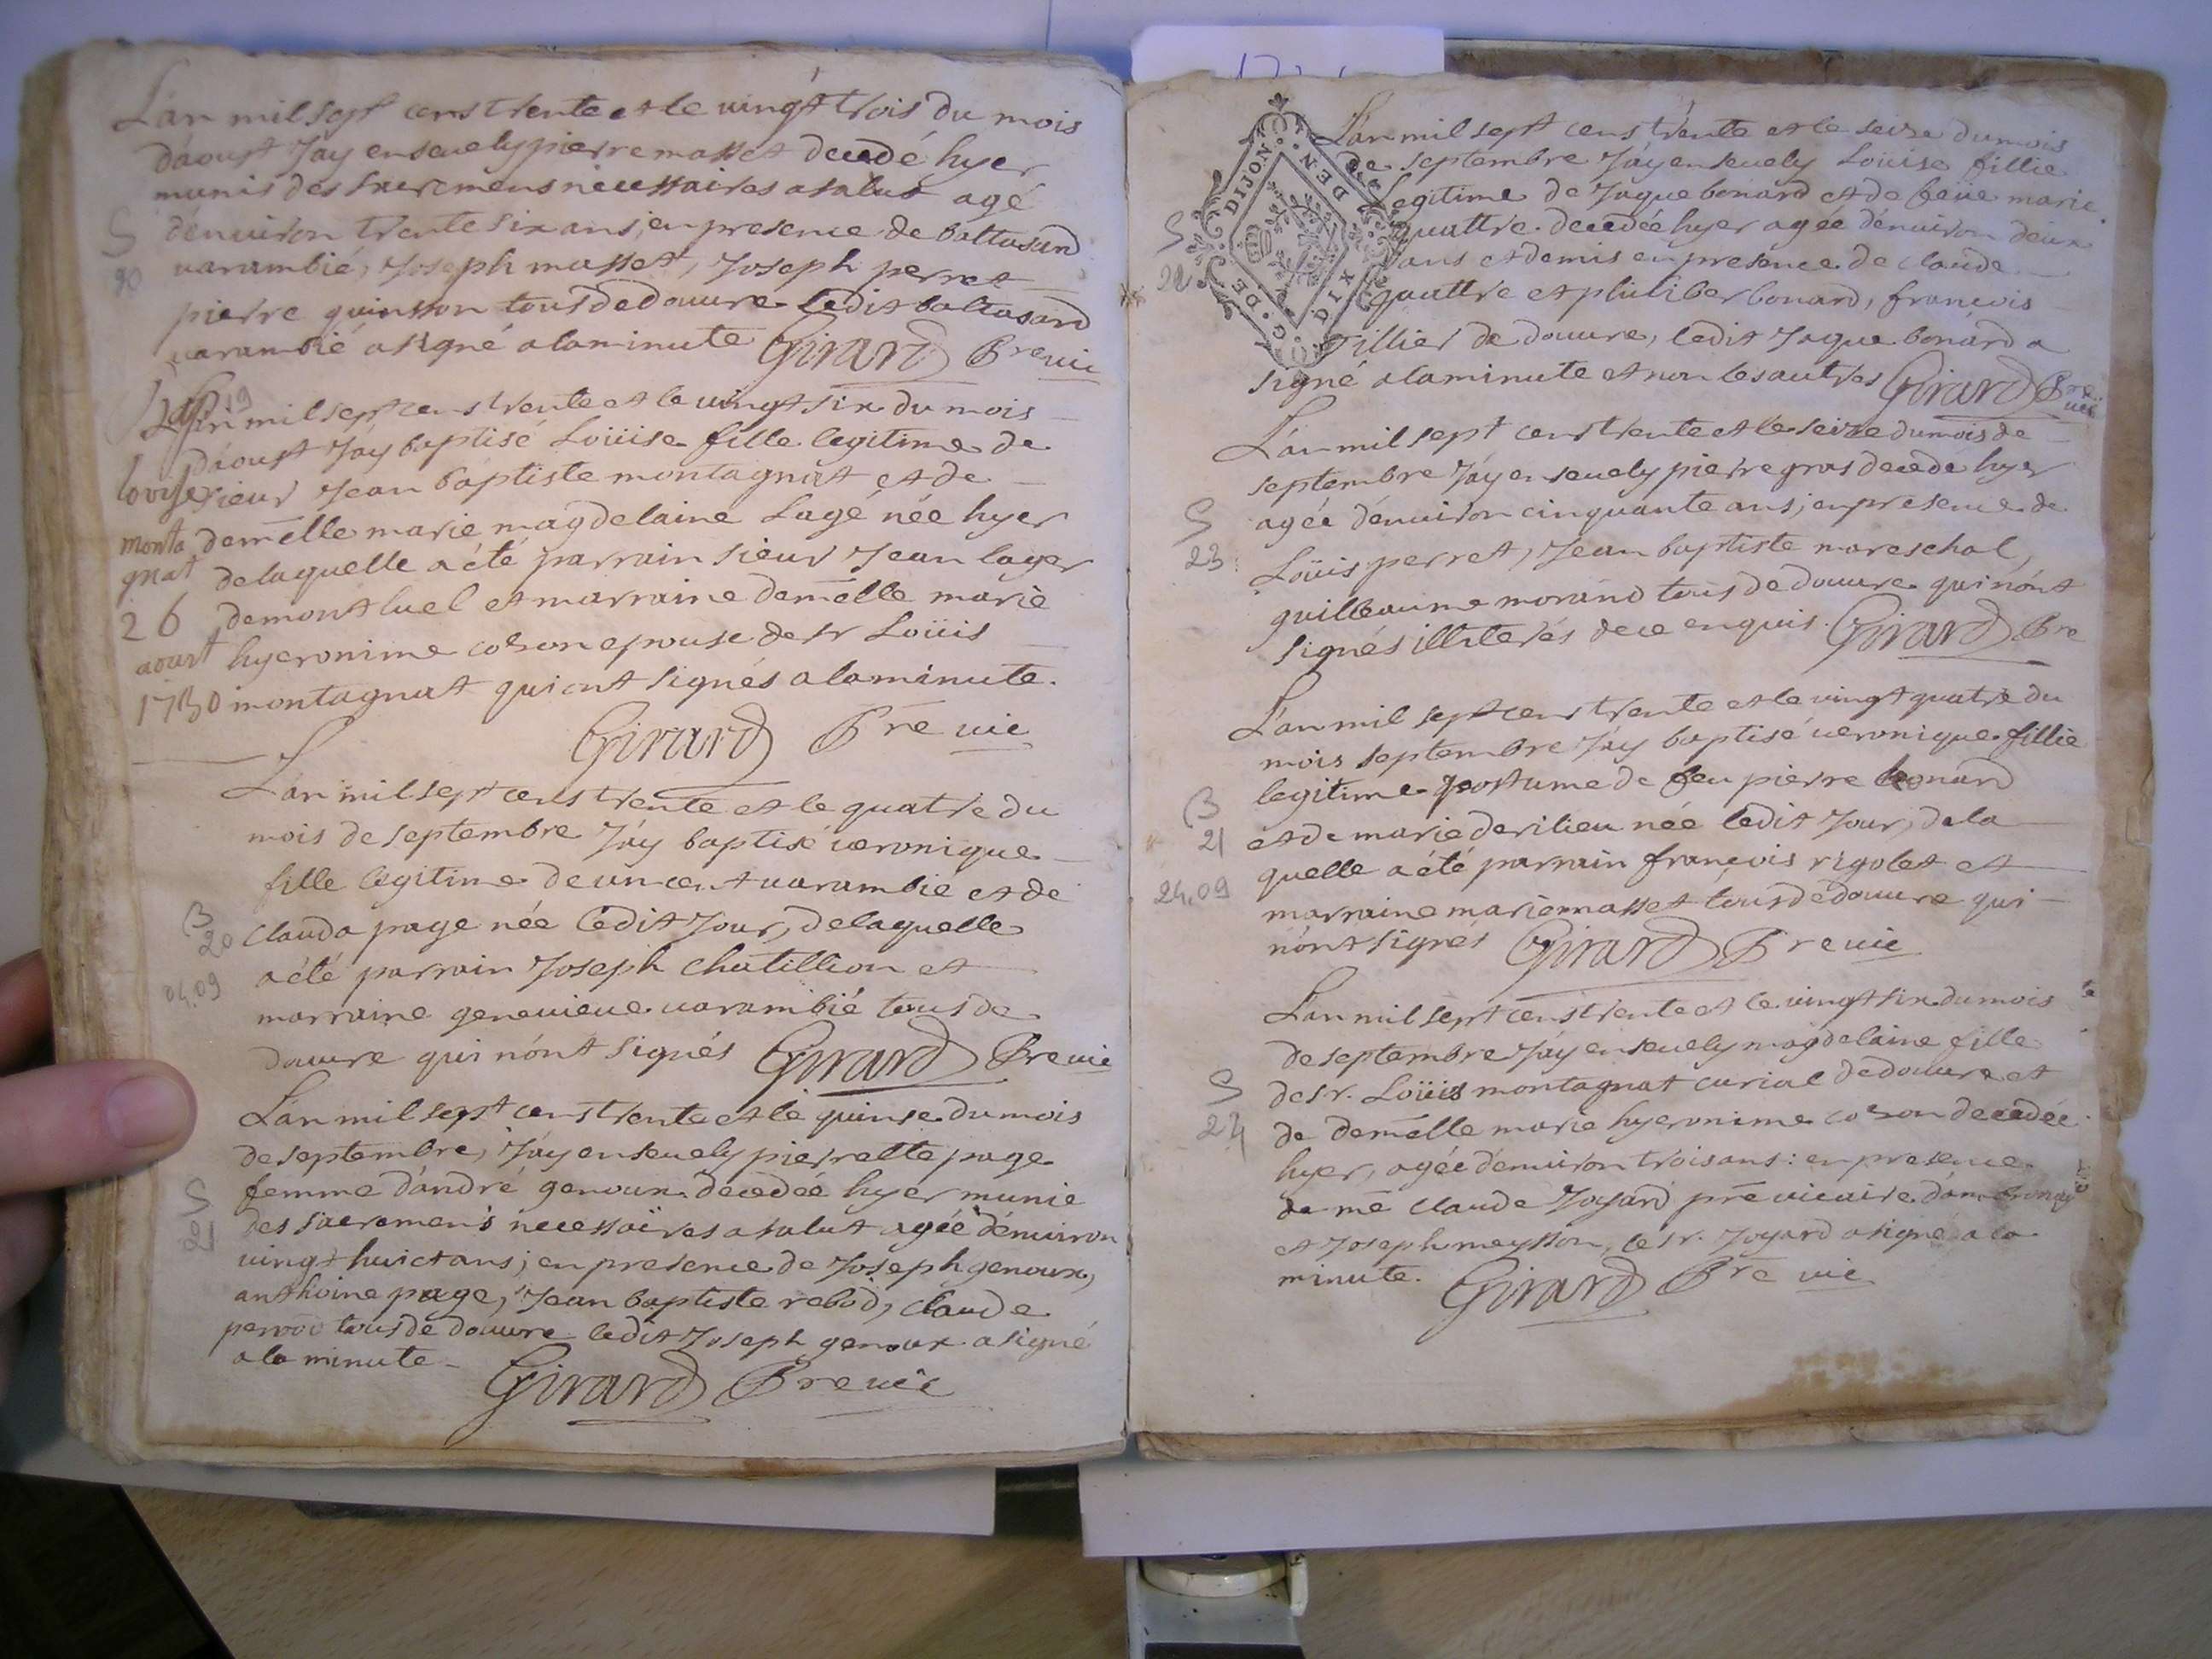 L'an mil sept cens trente et le vingt trois du mois
d'aoust J'ay ensevely pierre masset decedé hyer
munis des sacremens necessaires a salut agé
S
d'environ trente six ans, en presence de baltasard
20
varambié, Joseph masset, Joseph perret
pierre quinson tous de douvre ledit baltasard
varambié a signé a la minute Girard Bre vic
19
L'an mil sept cens trente et le vingt six du mois
d'aoust J'ay baptisé Loüise fille legitime de
lovyse
sieur Jean baptiste montagnat et de
monta
demelle marie magdelaine Lagé née hyer
gnat
de laquelle a été parrain sieur Jean lager
26
de montluel et marraine demelle marie
aoust
hyeronime cozon epouse de sr Loüis
1730
montagnat qui ont signés a la minute.
Girard Bre vic
L'an mil sept cens trente et le quatre du
mois de septembre J'ay baptisé veronique
fille legitime de vincent varambie et de
B
20
clauda page née ledit Jour, de laquelle
04.09
a été parrain Joseph chatillion et
marraine genevieve varambié tous de
douvre qui n'ont signés Girard Bre vic
L'an mil sept cens trente et le quinse du mois
de septembre, J'ay ensevely pierrette page
S
femme d'andré genoux decedée hyer munie
21
des sacremens necessaires a salut agée d'environ
vingt huict ans; en presence de Joseph genoux,
anthoine page, Jean baptiste rebod, claude
perrod tous de douvre ledit Joseph genoux a signé
a la minute
Girard Bre vic
G. DE DIJON
DEN
L'an mil sept cens trente et le seize du mois
de septembre J'ay ensevely Loüise fillie
Legitime de Jaque bonard et de feüe marie
S
quattre decedée hyer agée d'environ deux
22
ans et demis en presence de claude
quattre et philiber bonard, francois
Tillier de douvre, ledit Jaque bonard a
signé a la minute et non les autres Girard Bre vic
L'an mil sept cens trente et le seize du mois de
septembre J'ay ensevely pierre gras decedé hyer
S
agée d'environ cinquante ans; en presence de
23
Loüis perret, Jean baptiste mareschal,
guilleaume morand tous de douvre qui n'ont
signés illiterés de ce enquis. Girard Bre
L'an mil sept cens trente et le vingt quatre du
mois septembre J'ay baptisé veronique fillie
legitime postume de feu pierre bonard
B
21
et de marie derilieu née ledit Jour, de la
24.09
quelle a été parrain françois rigolet et
marraine marie masset tous de douvre qui
n'ont signés Girard Bre vic
L'an mil sept cens trente et le vingt six du mois
de septembre J'ay ensevely magdelaine fille
S
de sr. Loüis montagnat curial de douvre et
24
de demelle marie hyeronime cozon decedée
hyer, agée d'environ trois ans: en presence
de me claude Joyard pre vicaire d'ambronay
et Joseph meysson, le sr. Joyard a signé a la
minute. Girard Bre vic